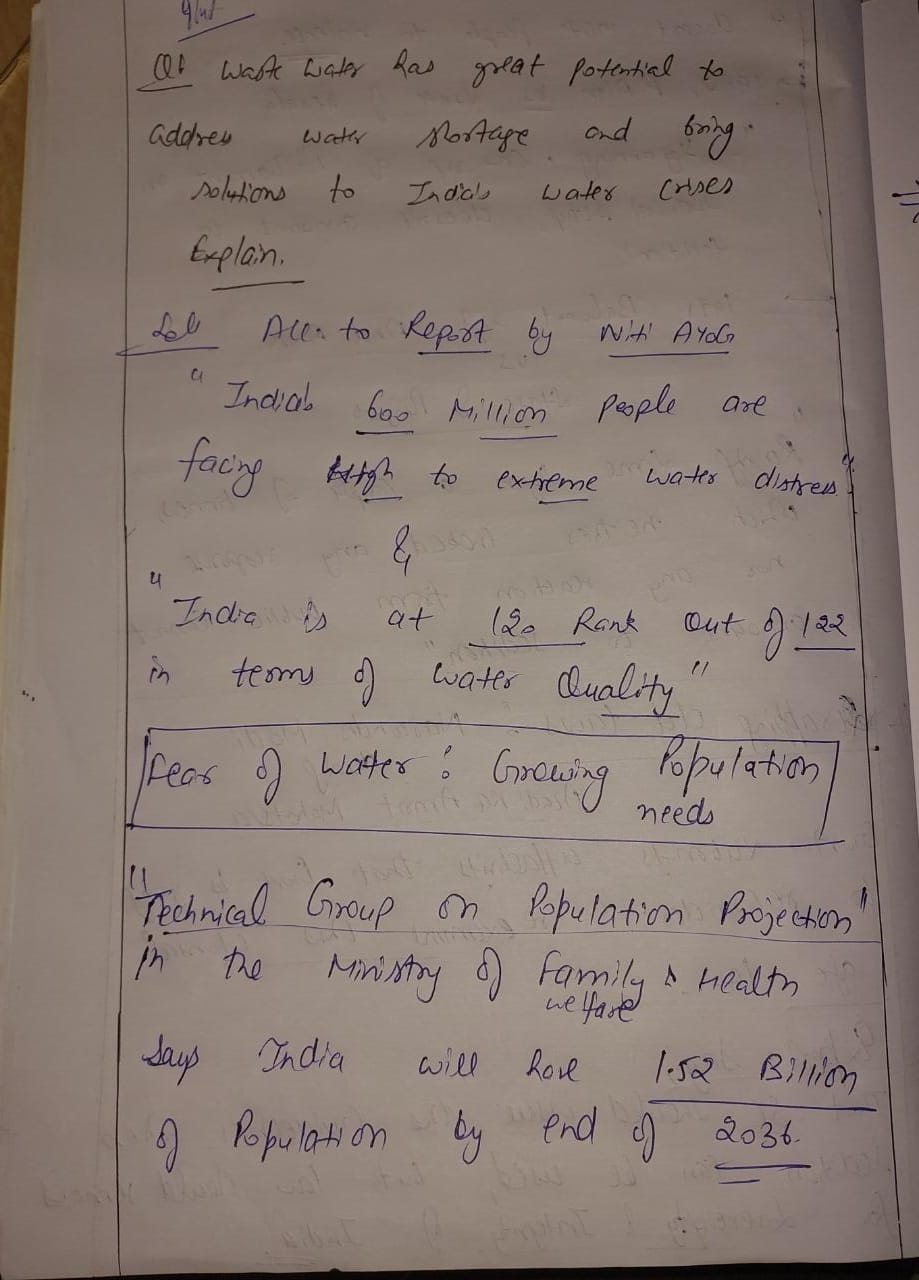 Q1 Waste Water has great potential to
address water shortage and bring
solutions to India's water crises
Explain.
Sol Acc. to Report by Niti AYOG
"India's 600 Million people are
facing High to extreme water distress"
&
"India is at 120 Rank Out of 122
in terms of water Quality"
Fear of water : Growing Population
needs
"Technical Group on Population Projection"
in the Ministry of Family & Health
welfare
Says India will have 1.52 Billion
of Population by end of 2036.